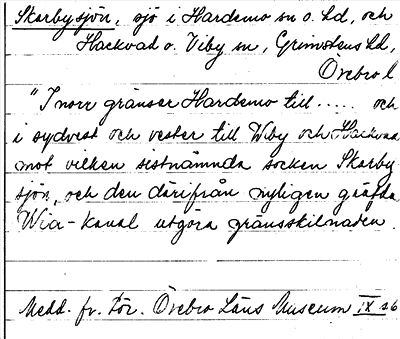 Skarbysjön, sjö i Hardemo sn o. hd, och
Hackvad o. Viby sn, Grimstens hd,
Örebro l
"I norr gränser Hardemo till ..... och
i sydvest och vester till Wiby och Hackvad
mot vilken sistnämnda socken Skarby
sjön, och den därifrån nyligen gräfda
Wia-kanal utgöra gränsskilnaden.
Medd. fr. För. Örebro Läns Museum IX s6